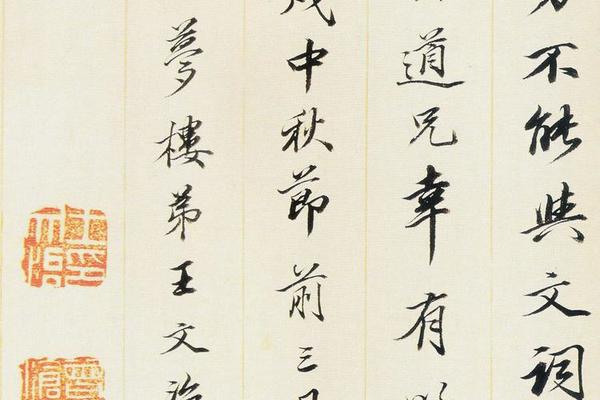 不能與文詞
道兄幸有以
戌中秋節前三日
夢樓弟王文治